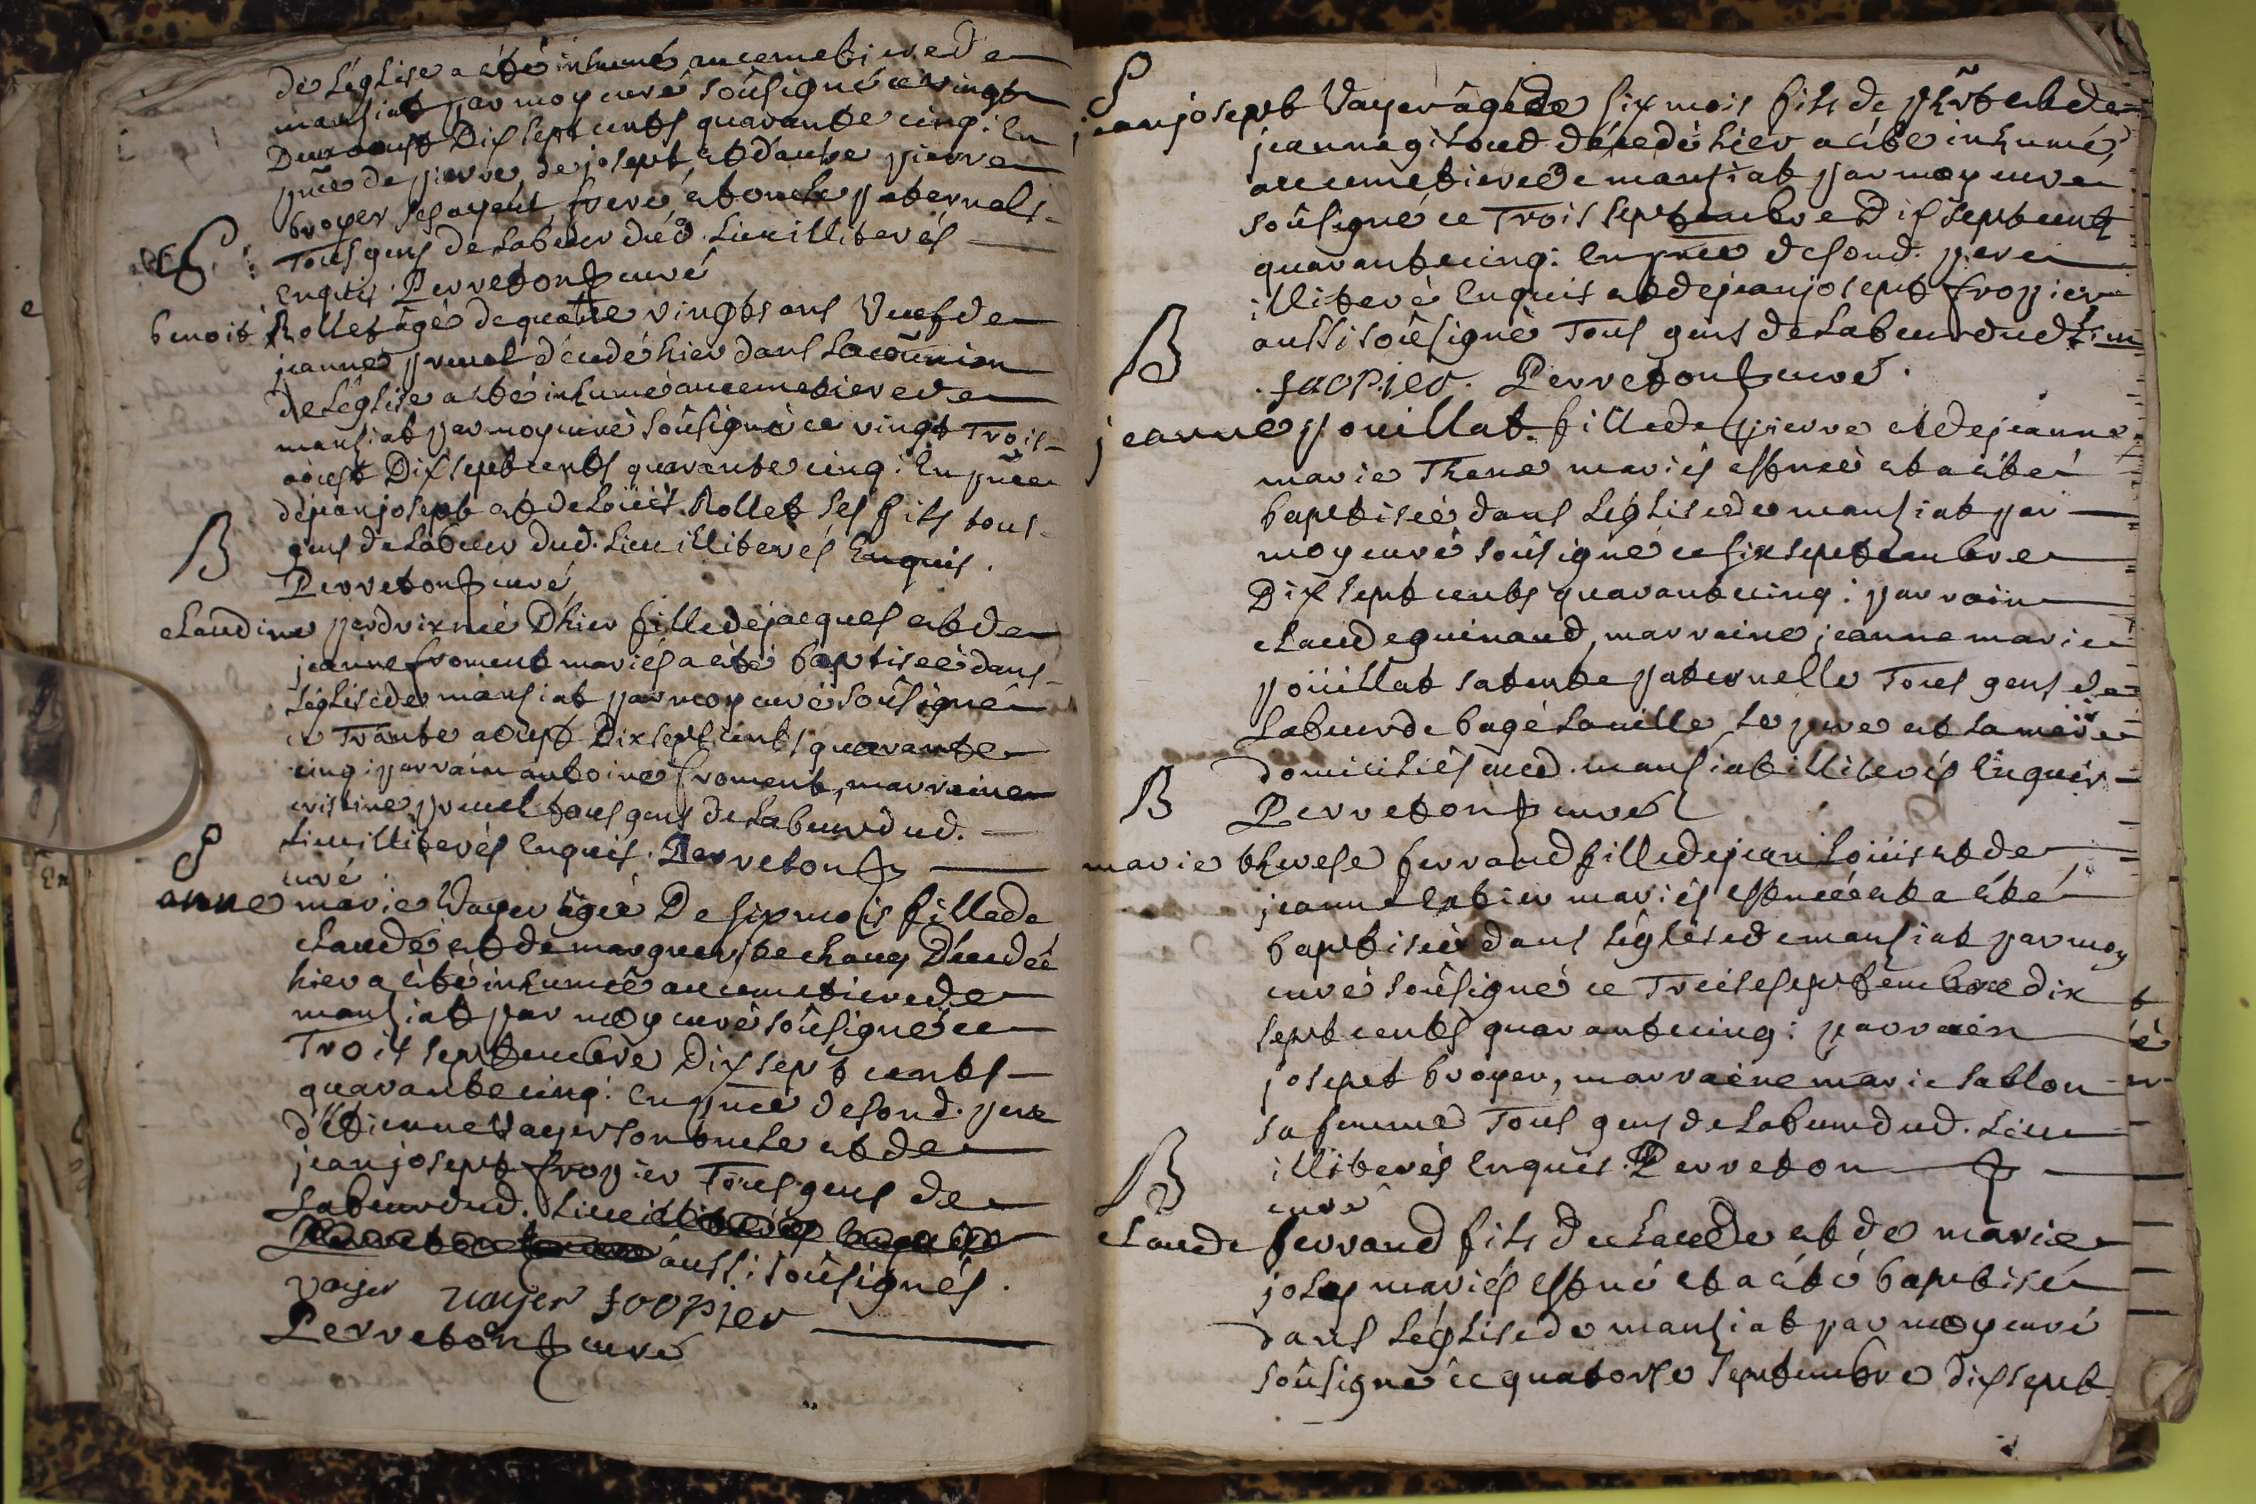 de Léglise a été inhumé au cemetiere de
manziat par moy curé soûsigné ce vingt
Deux aoust Dix sept cents quarante cinq: En
pñce de pierre, de joseph, et d'autre pierre
broyer ses ayeul, frere et oncle paternels.
Tous gens de Labeur dud. Lieu illiterés
Enquis. Perreton curé
S
benoit Rollet âgé de quatre vingts ans Veuf de
jeanne pruel décedé hier dans la com̃union
de Léglise a été inhumé au cemetiere de
manziat par moy curé soûsigné ce vingt Trois
aoust Dix sept cents quarante cinq: En pñce
de jean joseph et de Loüis Rollet ses fils tous
gens de Labeur dud. Lieu illiterés Enquis.
Perreton curé
B
claudine perdrix neé D'hier fille de jacques et de
jeanne froment mariés a été baptiseé dans
Léglise de manziat par moy curé soûsigné
ce Trante aoust Dix sept cents quarante
cinq: parrain antoine froment, marraine
cristine pruel tous gens de Labeur dud.
Lieu illiterés Enquis. Perreton
curé.
S
anne marie Vayer âgeé De six mois fille de
claude et de marguerite chang Décedeé
hier a été inhumeé au cemetiere de
manziat par moy curé soûsigné ce
Trois septembre Dix sept cents
quarante cinq: En pñce de sond. pere
d'Etienne Vayer son oncle et de
jean joseph fropier Tous gens de
Labeur dud. Lieu
aussi soûsignés.
vayer vayer fropier
Perreton curé
S
jean joseph Vayer âgé de six mois fils de phr̃t et de
jeanne giloud décedé hier a été inhumé
au cemetiere de manziat par moy curé
soûsigné ce Trois septembre Dix sept cents
quarante cinq: En pñce de sond. pere
illiteré Enquis et de jean joseph fropier
aussi soûsigné Tous gens de Labeur dud Lieu
fropier. Perreton curé.
B
jeanne poüillat fille de pierre et de jeanne
marie Thene mariés est neé et a été
baptiseé dans Léglise de manziat par
moy curé soûsigné ce six septembre
Dix sept cents quarante cinq: parrain
claude guinaud, marraine jeanne marie
poüillat sa tente paternelle Tous gens de
Labeur de bagé La ville, Le pere et La mere
domiciliés aud. manziat illiterés Enquis
Perreton curé
B
marie therese ferrand fille de jean Loüis et de
jeanne Catier mariés est neé et a été
baptiseé dans Léglise de manziat par moy
curé soûsigné ce Treise septembre dix
sept cents quarante cinq: parrain
joseph broyer, marraine marie sablon
sa femme Tous gens de Labeur dud. Lieu
illiterés Enquis. Perreton
curé
B
claude ferrand fils de claude et de marie
joly mariés est né et a été baptisé
dans Léglise de manziat par moy curé
soûsigné ce quatorse septembre dix sept